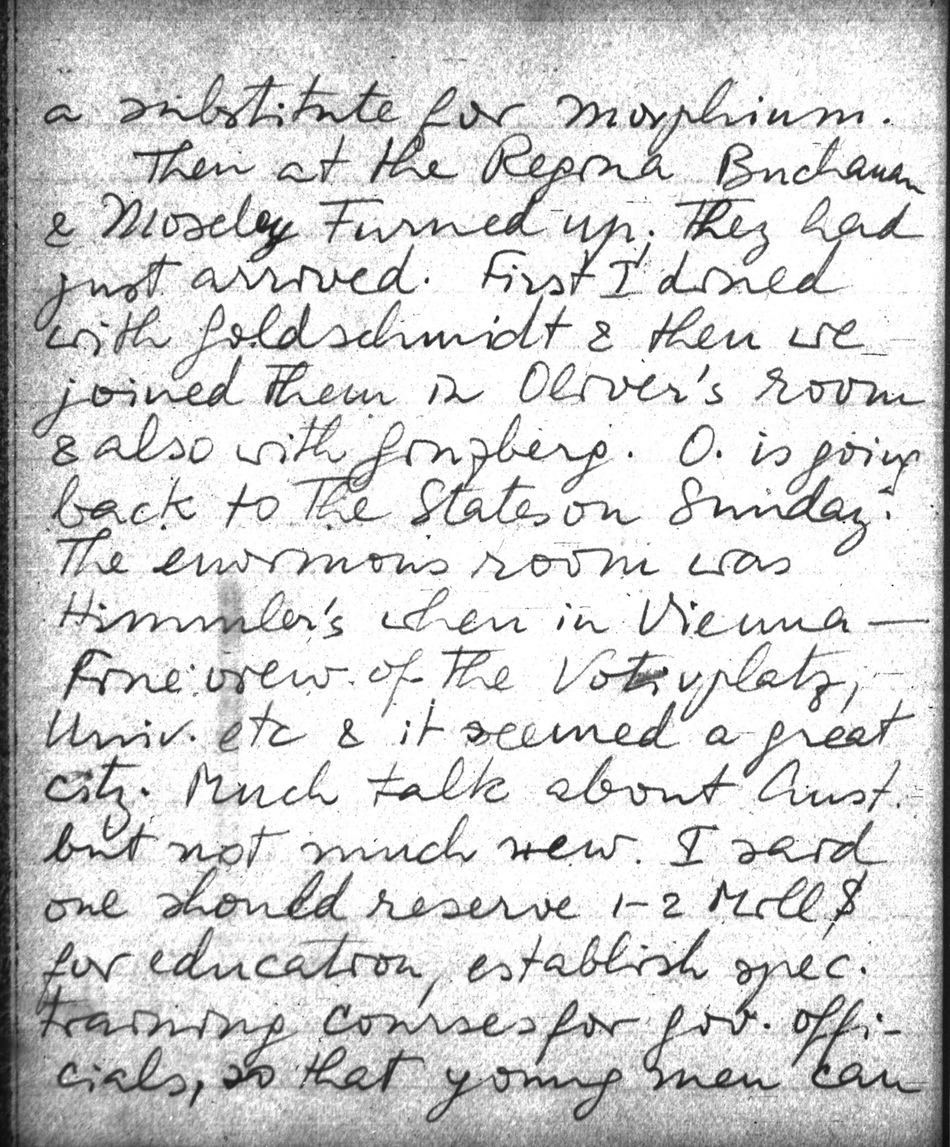 a substitute for morphium.
Then at the Regina Buchanan
& Moseley turned up. They had
just arrived. First I dined
with Goldschmidt & then we
joined them in Oliver's room
& also with Ginzberg. O. is going
back to the States on Sunday.
The enormous room was
Himmler's when in Vienna —
Fine view of the Votivplatz,
Univ. etc & it seemed a great
city. Much talk about Aust.
but not much new. I said
one should reserve 1-2 Mill $
for education, establish spec.
training courses for gov. offi-
cials, so that young men can